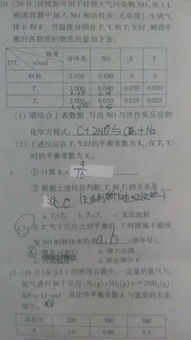 10.(20分)活性炭可用于处理大气污染物NO,在1L
密闭容器中加入NO和活性炭(无杂质),生成气
体E和F。当温度分别在T₁℃和T₂℃时,测得平
衡时各物质的物质的量如下表:
物质
n/mol
T/℃
活性炭 NO E F
初始 2.030 0.100 0 0
T₁ 2.000 0.040 0.030 0.030
T₂ 2.005 0.050 0.025 0.025
(1)请结合上表数据,写出NO与活性炭反应的
化学方程式:C+2NO
(2)上述反应在T₁℃时的平衡常数为K₁,在T₂℃
时的平衡常数为K₂。
①计算K₁=
②根据上述信息判断,T₁和T₂的关系是
C.
a. T₁>T₂ b. T₁<T₂ c. 无法比较
(3)在T₁℃下反应达到平衡后,下列措施不能改
变NO的转化率的是a,b(填序号)。
b. 增大压强
d. 移去部分F
11.(16分)在0.5L的密闭容器中,一定量的氮气与
氢气进行如下反应:N₂(g)+3H₂(g)⇌2NH₃(g)
ΔH=a kJ·mol⁻¹,其化学平衡常数K与温度的关系
如下。
温度/℃ 200 300 400
K 1.0 0.86 0.5